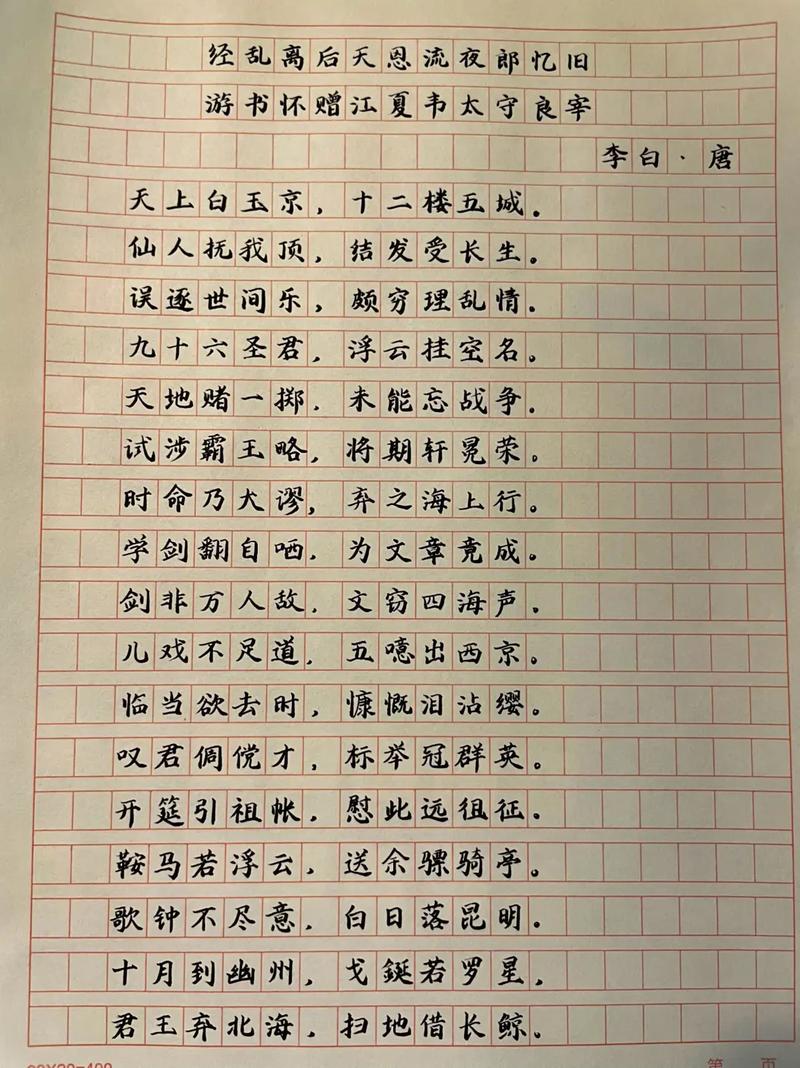 经乱离后天恩流夜郎忆旧
游书怀赠江夏韦太守良宰
李白·唐
天上白玉京，十二楼五城。
仙人抚我顶，结发受长生。
误逐世间乐，颇穷理乱情。
九十六圣君，浮云挂空名。
天地赌一掷，未能忘战争。
试涉霸王略，将期轩冕荣。
时命乃大谬，弃之海上行。
学剑翻自哂，为文章竟成。
剑非万人敌，文窃四海声。
儿戏不足道，五噫出西京。
临当欲去时，慷慨泪沾缨。
叹君倜傥才，标举冠群英。
开筵引祖帐，慰此远徂征。
鞍马若浮云，送余骠骑亭。
歌钟不尽意，白日落昆明。
十月到幽州，戈鋋若罗星，
君王弃北海，扫地借长鲸。
20X20=400
第 页